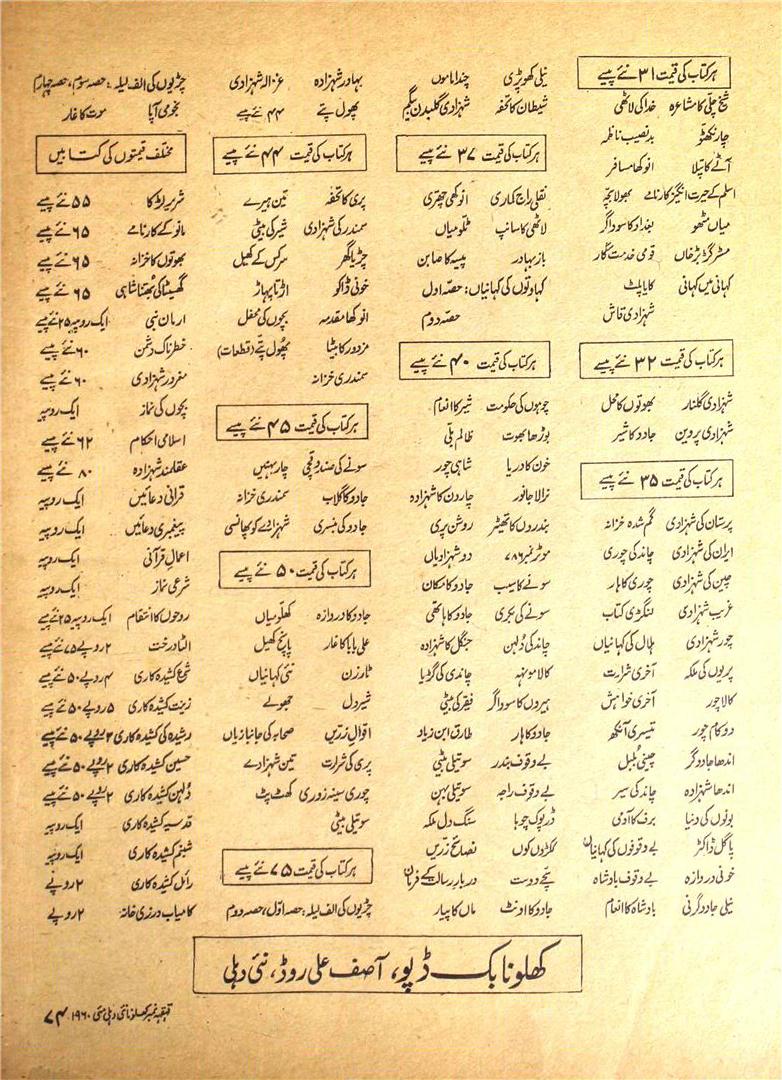 ہر کتاب کی قیمت ۳۱ نئے پیسے
شیخ چلّی کا مشاعرہ خدا کی لاٹھی
چار نکھٹو بدنصیب ناظمہ
آٹے کا پتلا انوکھا مسافر
اسلم کے حیرت انگیز کارنامے بھولا بچّہ
میاں مٹھو بغداد کا سوداگر
مسٹر گڑبڑ خاں قومی خدمت گار
کہانی میں کہانی کایا پلٹ
شہزادی قاش
ہر کتاب کی قیمت ۳۲ نئے پیسے
شہزادی گلنار بھوتوں کا محل
شہزادی پروین جادو کا شیر
ہر کتاب کی قیمت ۳۵ نئے پیسے
پرستان کی شہزادی گم شدہ خزانہ
ایران کی شہزادی چاند کی چوری
چین کی شہزادی چوری کا ہار
غریب شہزادی لنگڑی کتاب
چور شہزادی ہلال کی کہانیاں
پریوں کی ملکہ آخری شرارت
کالا چور آخری خواہش
دو کام چور تیسری آنکھ
اندھا جادوگر چینی بلبل
اندھا شہزادہ چاند کی سیر
بونوں کی دنیا برف کا آدمی
پاگل ڈاکٹر بے وقوفوں کی کہانیاں
خونی دروازہ بے وقوف بادشاہ
نیلی جادوگرنی بادشاہ کا انعام
نیلی کھوپڑی چندا ماموں
شیطان کا تحفہ شہزادی گلبدن بیگم
ہر کتاب کی قیمت ۳۷ نئے پیسے
نقلی راج کماری انوکھی چھتری
لاٹھی کا سانپ ٹلّو میاں
باز بہادر پیسہ کا صابن
کہاوتوں کی کہانیاں: حصّہ اول
حصّہ دوم
ہر کتاب کی قیمت ۴۰ نئے پیسے
چوہوں کی حکومت شیر کا انعام
بوڑھا بھوت ظالم بلّی
خون کا دریا شاہی چور
نرالا جانور چار دن کا شہزادہ
بندروں کا تھیٹر روشن پری
موٹر نمبر ۷۸۶ دو شہزادیاں
سونے کا سیب جادو کا مکان
سونے کی بکری جادو کا ہاتھی
چاند کی دُلہن جنگل کا شہزادہ
کالا موتیہ چاندی کی گڑیا
ہیروں کا سوداگر فقیر کی بیٹی
جادو کا ہار طارق ابن زیاد
بے وقوف بندر سوتیلی بیٹی
بے وقوف راجہ سوتیلی بہن
ڈرپوک چوہا سنگ دل ملکہ
ککڑوں کوں نصائح زرّیں
سچّے دوست دربار رسالت کے فرمان
جادو کا اونٹ ماں کا پیار
بہادر شہزادہ غزالہ شہزادی
پھول پتے ۴۴ نئے پیسے
ہر کتاب کی قیمت ۴۴ نئے پیسے
پری کا تحفہ تین ہیرے
سمندر کی شہزادی شیر کی بیٹی
چڑیا گھر سرکس کے کھیل
خونی ڈاکو اڑتا پہاڑ
انوکھا مقدمہ بچوں کی محفل
مزدور کا بیٹا پھول پتّے (قطعات)
سمندری خزانہ
ہر کتاب کی قیمت ۴۵ نئے پیسے
سونے کی صندوقچی چار بہنیں
جادو کا گلاب سمندری خزانہ
جادو کی بنسری شہزادے کو پھانسی
ہر کتاب کی قیمت ۵۰ نئے پیسے
جادو کا دروازہ کھلّو میاں
علی بابا کا غار پانچ کھیل
ٹارزن نئی کہانیاں
شیر دل جھولے
اقوالِ زرّیں صحابہ کی جانبازیاں
پری کی شرارت تین شہزادے
چوری سینہ زوری کھٹ پٹ
سوتیلی بیٹی
ہر کتاب کی قیمت ۷۵ نئے پیسے
چڑیوں کی الف لیلہ: حصہ اوّل، حصہ دوم
چڑیوں کی الف لیلہ: حصہ سوم، حصہ چہارم
نجومی آپا موت کا غار
مختلف قیمتوں کی کتابیں
شریر لڑکا ۵۵ نئے پیسے
مانو کے کارنامے ۶۵ نئے پیسے
بھوتوں کا خزانہ ۶۵ نئے پیسے
گھسیٹا کی بھتنا شاہی ۶۵ نئے پیسے
ارمان نبی ایک روپیہ ۲۵ نئے پیسے
خطرناک دشمن ۶۰ نئے پیسے
مغرور شہزادی ۶۰ نئے پیسے
بچوں کی نماز ایک روپیہ
اسلامی احکام ۶۲ نئے پیسے
عقلمند شہزادہ ۸۰ نئے پیسے
قرانی دعائیں ایک روپیہ
پیغمبری دعائیں ایک روپیہ
اعمال قرآنی ایک روپیہ
شرعی نماز ایک روپیہ
روحوں کا انتقام ایک روپیہ ۲۵ نئے پیسے
الٹا درخت ۲ روپے ۷۵ نئے پیسے
شمع کشیدہ کاری ۴ روپے ۵۰ نئے پیسے
زینت کشیدہ کاری ۵ روپے ۵۰ نئے پیسے
رشیدہ کی کشیدہ کاری ۲ روپے ۵۰ نئے پیسے
حسین کشیدہ کاری ۲ روپے ۵۰ نئے پیسے
دُلہن کشیدہ کاری ۲ روپے ۵۰ نئے پیسے
قدسیہ کشیدہ کاری ایک روپیہ
شبنم کشیدہ کاری ایک روپیہ
رائل کشیدہ کاری ۲ روپے
کامیاب درزی خانہ ۲ روپے
کھلونا بک ڈپو، آصف علی روڈ، نئی دہلی
قہقہہ نمبر کھلونا نئی دہلی مئی ۱۹۶۰ ۷۴